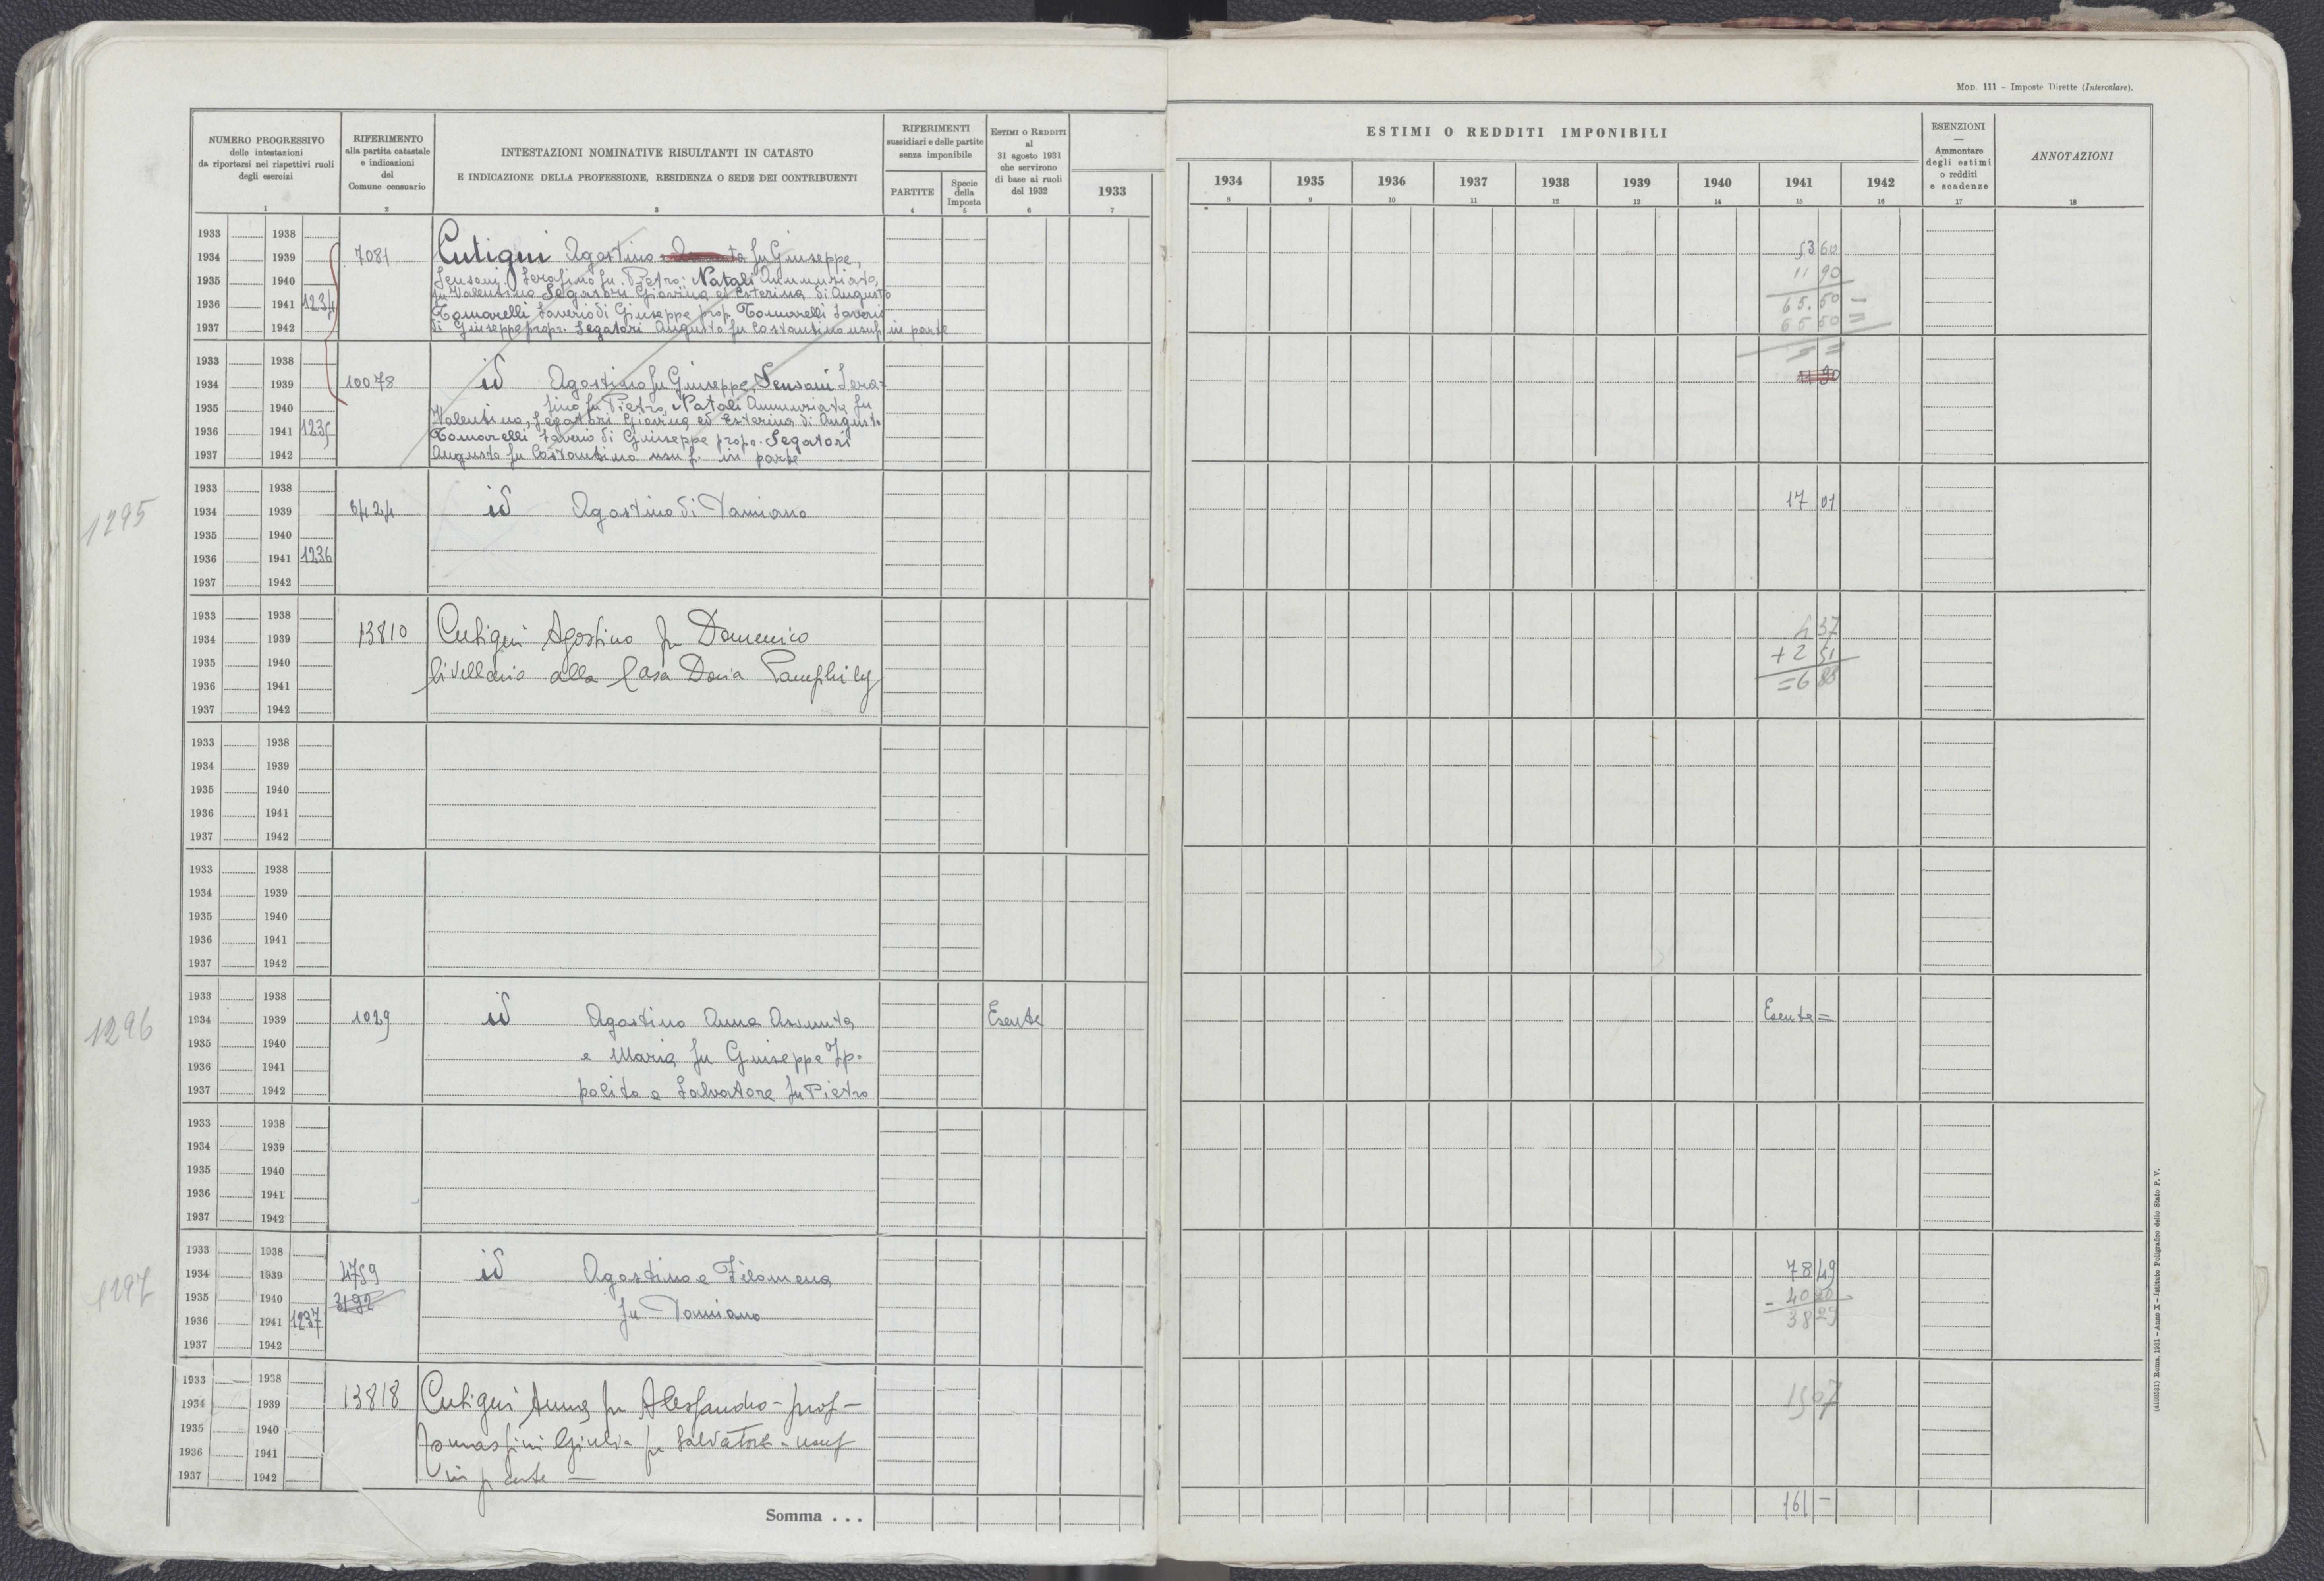 Mod. 111 - Imposte Dirette (Intercalare).
NUMERO PROGRESSIVO
delle intestazioni
da riportarsi nei rispettivi ruoli
degli esercizi
1
RIFERIMENTO
alla partita catastale
e indicazioni
del
Comune censuario
2
INTESTAZIONI NOMINATIVE RISULTANTI IN CATASTO
E INDICAZIONE DELLA PROFESSIONE, RESIDENZA O SEDE DEI CONTRIBUENTI
3
RIFERIMENTI
sussidiari e delle partite
senza imponibile
PARTITE
4
Specie
della
Imposta
5
ESTIMI O REDDITI
al
31 agosto 1931
che servirono
di base ai ruoli
del 1932
6
1933
7
ESTIMI O REDDITI IMPONIBILI
1934 1935 1936 1937 1938 1939 1940 1941 1942
8 9 10 11 12 13 14 15 16
ESENZIONI
Ammontare
degli estimi
o redditi
e scadenze
17
ANNOTAZIONI
18
1933 1938
1934 1939 7081 Cutigni Agostino fu Giuseppe, 53 60
1935 1940 Sensoni Serafino fu Pietro: Natali Annunziata, 11 90
fu Valentino Segatori Giovina ed Esterina di Augusto
1936 1941 1234 Tomarelli Saverio di Giuseppe prop. Tomarelli Saverio 65.50 -
1937 1942 di Giuseppe propr. Segatori Augusto fu Costantino usuf in parte 65 50 =
1933 1938
1934 1939 10078 id Agostino fu Giuseppe, Sensoni Sera- 11 90
1935 1940 fino fu Pietro, Natali Annunziata fu
Valentino, Segatori Giovina ed Esterina di Augusto
1936 1941 1235 Tomarelli Saverio di Giuseppe propr. Segatori
1937 1942 Augusto fu Costantino usuf. in parte
1933 1938
1295 1934 1939 6424 id Agostino di Damiano 17 01
1935 1940
1936 1941 1236
1937 1942
1933 1938
1934 1939 13810 Cutigni Agostino fu Domenico 4 37
1935 1940 livellario alla Casa Doria Pamphily + 2 51
1936 1941 = 6 88
1937 1942
1933 1938
1934 1939
1935 1940
1936 1941
1937 1942
1933 1938
1934 1939
1935 1940
1936 1941
1937 1942
1933 1938
1296 1934 1939 1029 id Agostino Anna Assunta Esente Esente =
1935 1940 e Maria fu Giuseppe Ip-
1936 1941
1937 1942 polito e Salvatore fu Pietro
1933 1938
1934 1939
1935 1940
1936 1941
1937 1942
1933 1938
1297 1934 1939 4759 id Agostino e Filomena 78 49
1935 1940 3192 - 40 20
1936 1941 1237 fu Damiano 38 29
1937 1942
1933 1938
1934 1939 13818 Cutigni Anna fu Alessandro - prop - 15 07
1935 1940
1936 1941 Tomassini Giulia fu Salvatore - usuf
1937 1942 in parte -
Somma . . . 161 -
(4103531) Roma, 1931 - Anno X - Istituto Poligrafico dello Stato P. V.